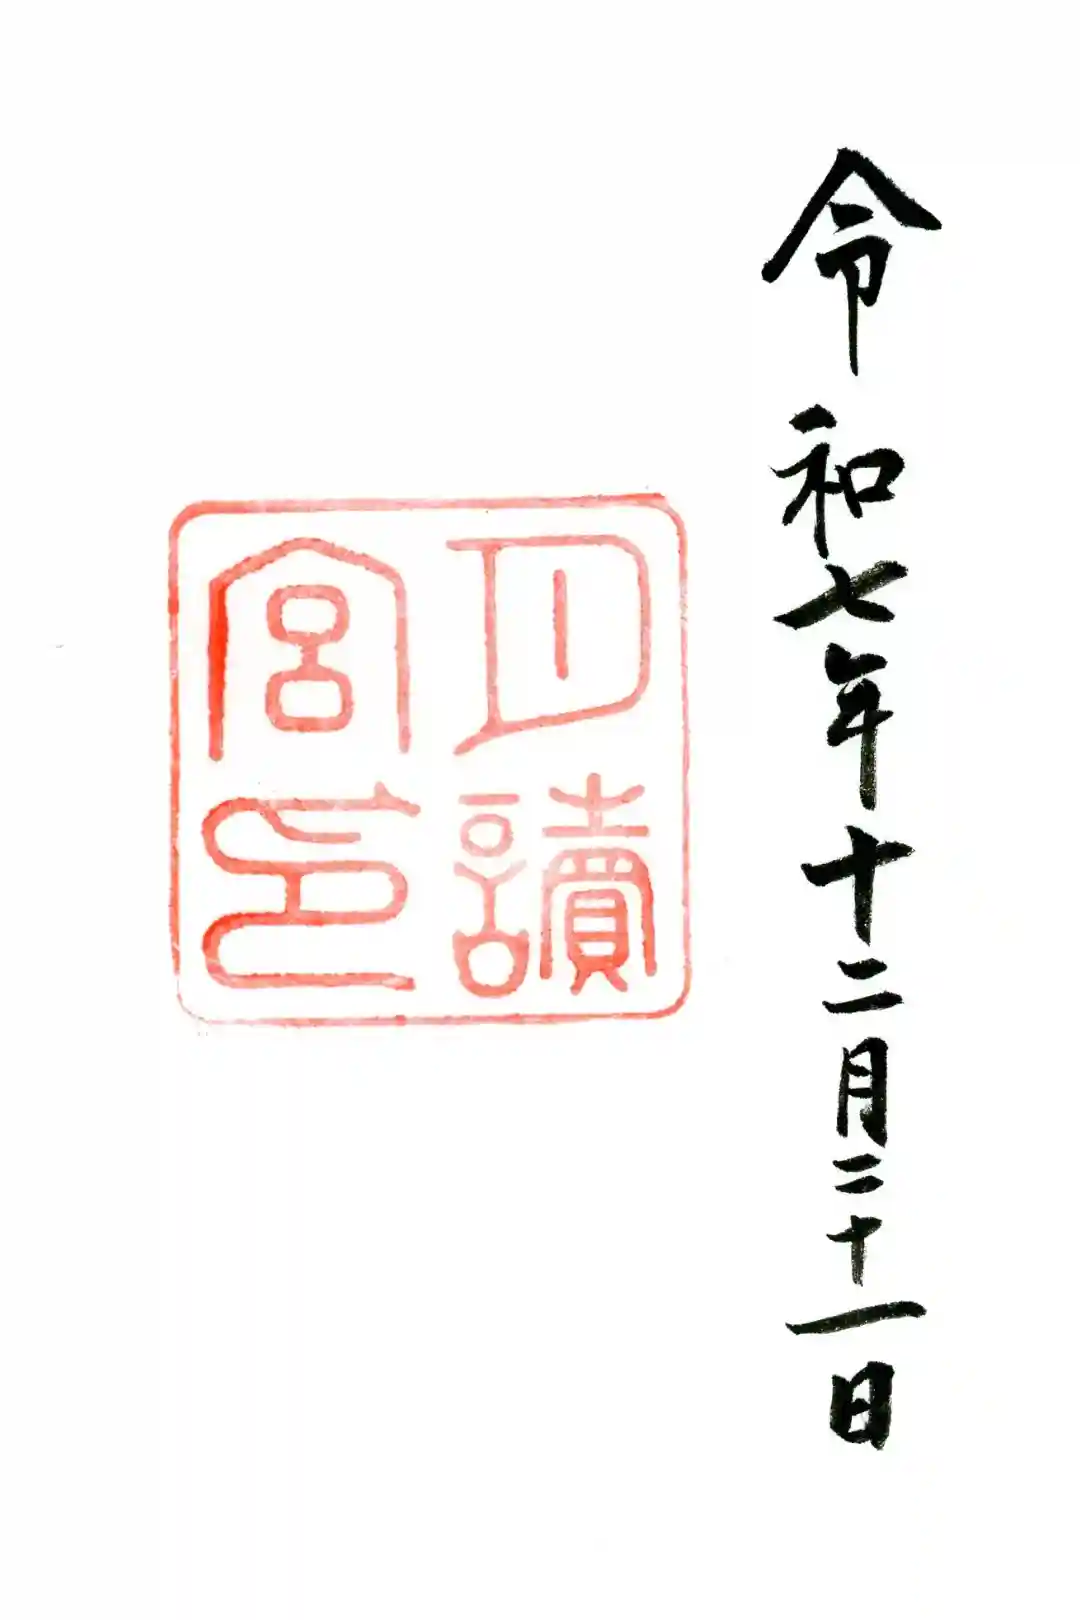 令和七年十二月二十一日
月讀
宮印